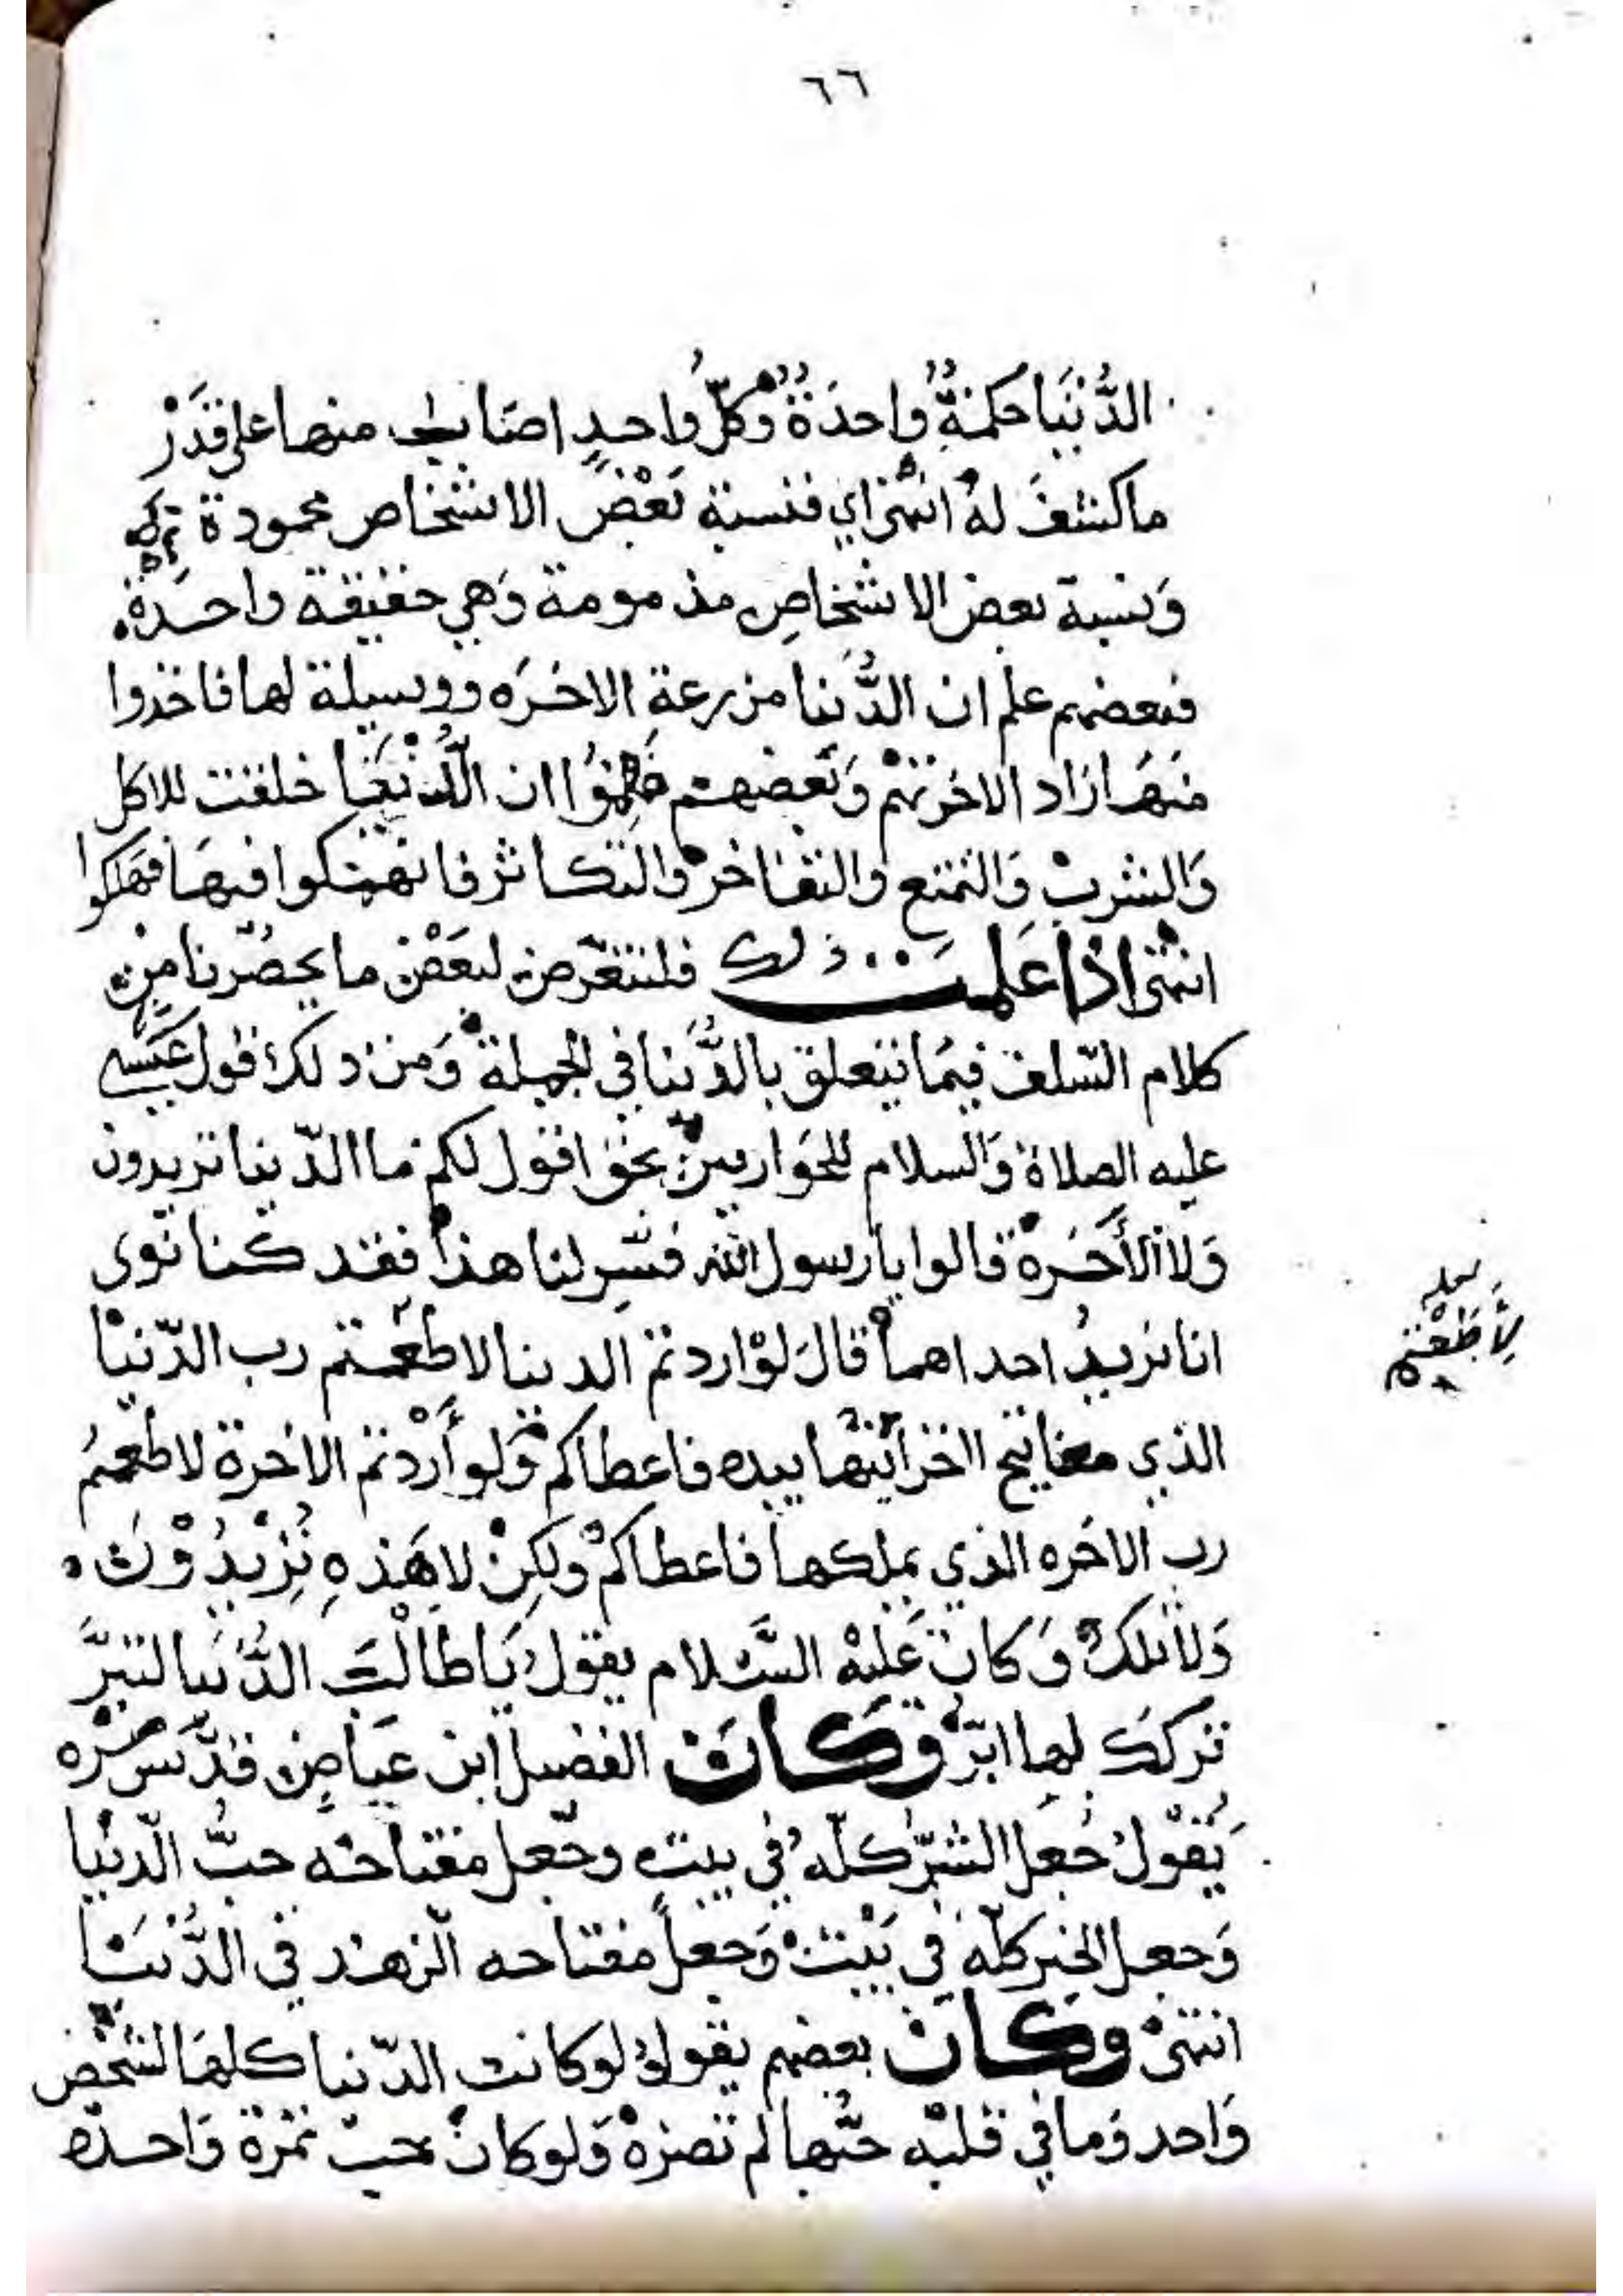 ٦٦
الدُّنْيَا حكمةٌ واحدَةٌ وَكلُّ واحدٍ اصَابـ منها على قدَرْ
ما كشفَ لهُ انتهى اي فنسبة بَعْضُ الاشخاص محمودة
وَنسبة بعض الاشخاصِ مذمومة وَهي حقيقة واحدة
فبعضهم علم ان الدُّنيا مزرعة الاخَرَه ووسيلة لها فاخذوا
منهَا زاد الاخرتهمْ وَبَعضهم ظنوُا ان الدُّنْيَا خلقت للاكل
وَالشربْ وَالتمتع وَالتفاخرْ وَالتكاثر فانهمكوا فيهَا فهَلكوا
انتهى اذا علمتَ ذلك فلنتعرّض لبعَضْ ما يحضُرنا مِنْ
كلام السّلف فيمَا يتعلق بالدُّنيَا في الجملة وَمن ذلك قول عيَسى
عليه الصلاة وَالسلام للحَواريينْ بحق اقول لكم ما الدّنيا تريدون
وَلا الأَخَرةْ قالوا يا رسول الله فسّرِ لنا هذا فقد كنا نوى
انا نريدُ احداهما قالَ لوْ اردتم الدنيا لاطعَمتم رب الدّنيْا
الذي مفاتيح الخزائنها بيده فاعطاكم وَلو أَرَدْتم الاخرة لاطعمتمُ
رب الاخَره الذي يملكها فاعطاكمْ ولكِنْ لا هَذهِ تُرِيْدُوْنَ
وَلا تلكْ وَكانَ عَليهْ السَّلام يقولُ يَا طَالْبَ الدُّنيَا لتبرَّ
تركك لها ابرّ وَكانَ الفضيل ابن عيَاضٍ قدَّسَ سرّه
يَقوْلُ جُعلَ الشرّ كلّهُ في بيتٍ وجُعل مفتاحَه حبُّ الدّنيْا
وَجعل الخير كلّه في بَيْتْ وَجعلَ مفتاحه الزهد في الدُّنْيَا
انتهىْ وَكانَ بعضهم يقولُ لوكانت الدّنيا كلهَا لشخْص
وَاحد وَما في قلبْه حبُّها لم تضرهْ وَلو كانْ يحبّ تمْرة وَاحده
لأَطَعْتم